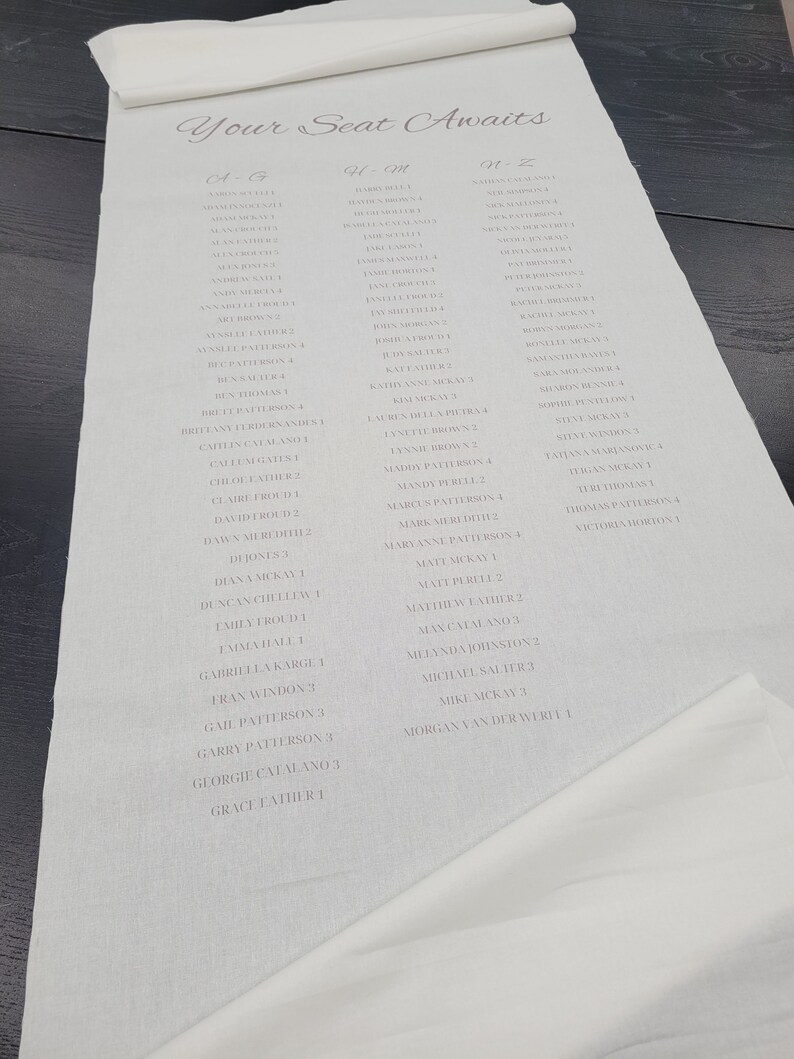 Your Seat Awaits
A - G
AARON SCULLI 1
ADAM INNOCENZI 1
ADAM MCKAY 1
ALAN CROUCH 3
ALAN EATHER 2
ALEX CROUCH 3
ALEX JONES 3
ANDREW SATE 1
ANDY MERCIA 4
ANNABELLE FROUD 1
ART BROWN 2
AYNSLEE EATHER 2
AYNSLEE PATTERSON 4
BEC PATTERSON 4
BEN SALTER 4
BEN THOMAS 1
BRETT PATTERSON 4
BRITTANY FERDERNANDES 1
CAITLIN CATALANO 1
CALLUM GATES 1
CHLOE EATHER 2
CLAIRE FROUD 1
DAVID FROUD 2
DAWN MEREDITH 2
DI JONES 3
DIANA MCKAY 1
DUNCAN CHELLEW 1
EMILY FROUD 1
EMMA HALE 1
GABRIELLA KARGE 1
FRAN WINDON 3
GAIL PATTERSON 3
GARRY PATTERSON 3
GEORGIE CATALANO 3
GRACE EATHER 1
H - M
HARRY BELL 1
HAYDEN BROWN 4
HUGH MOLLER 1
ISABELLA CATALANO 3
JADE SCULLI 1
JAKE EASON 1
JAMES MAXWELL 4
JAMIE HORTON 1
JANE CROUCH 3
JANELLE FROUD 2
JAY SHEFFIELD 4
JOHN MORGAN 2
JOSHUA FROUD 1
JUDY SALTER 3
KAT EATHER 2
KATHYANNE MCKAY 3
KIM MCKAY 3
LAUREN DELLA-PIETRA 4
LYNETTE BROWN 2
LYNNIE BROWN 2
MADDY PATTERSON 4
MANDY PERELL 2
MARCUS PATTERSON 4
MARK MEREDITH 2
MARYANNE PATTERSON 4
MATT MCKAY 1
MATT PERELL 2
MATTHEW EATHER 2
MAX CATALANO 3
MELYNDA JOHNSTON 2
MICHAEL SALTER 3
MIKE MCKAY 3
MORGAN VAN DER WERFF 1
N - Z
NATHAN CATALANO 1
NEIL SIMPSON 4
NICK MALLONIY 4
NICK PATTERSON 4
NICK VAN DER WERFF 1
NICOLE
OLIVIA MOLLER 1
PAT BRIMMER 1
PETER JOHNSTON 2
PETER MCKAY 3
RACHEL BRIMMER 1
RACHEL MCKAY 1
ROBYN MORGAN 2
RONELLE MCKAY 3
SAMANTHA BAYES 1
SARA MOLANDER 4
SHARON BENNIE 4
SOPHIE PENTELOW 1
STEVE MCKAY 3
STEVE WINDON 3
TATJANA MARJANOVIC 4
TEIGAN MCKAY 1
TERI THOMAS 1
THOMAS PATTERSON 4
VICTORIA HORTON 1